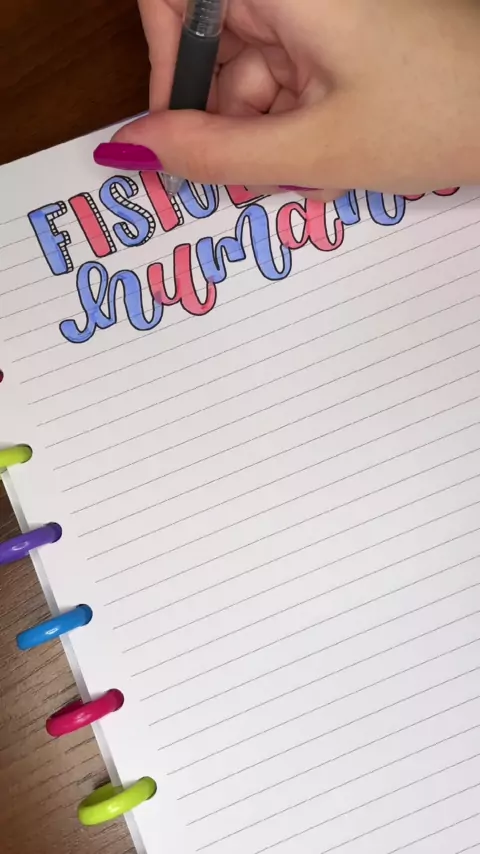 FISIOL
humana